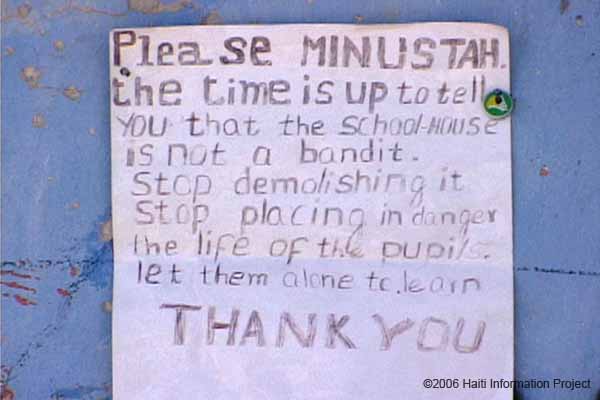 Please MINUSTAH.
the time is up to tell
YOU that the SCHOOL-HOUSE
is not a bandit.
Stop demolishing it
Stop placing in danger
the life of the pupils.
let them alone to learn
THANK YOU
©2006 Haiti Information Project